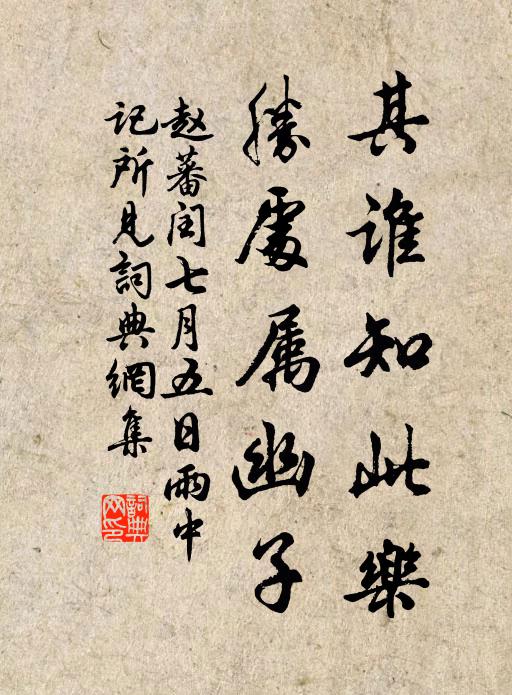 其谁知此樂
勝處属幽子
赵蕃闰七月五日雨中
记所见詞典網集
詞典
网印